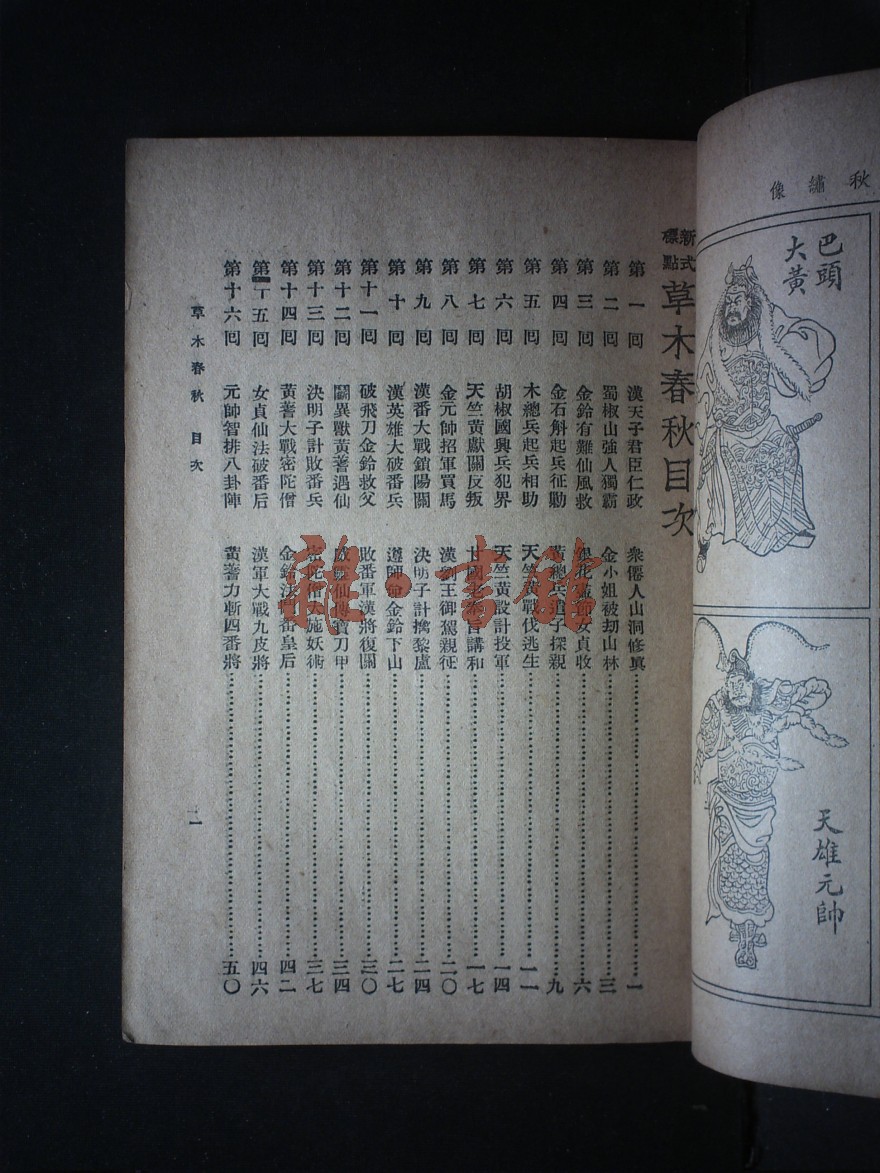 秋繡像
巴頭大黃
天雄元帥
新式標點
草木春秋目次
第一回 漢天子君臣仁政 衆僊人山洞修真 一
第二回 蜀椒山強人獨霸 金小姐被刼山林 三
第三回 金鈴有難仙風救 銀花 女貞收 六
第四回 金石斛起兵征勦 黃總兵遣子探親 九
第五回 木總兵起兵相助 天竺黃戰伐逃生 一一
第六回 胡椒國興兵犯界 天竺黃設計投軍 一四
第七回 天竺黃獻關反叛 甘國老奉旨講和 一七
第八回 金元帥招軍買馬 漢劉王御駕親征 二〇
第九回 漢番大戰鎖陽關 決明子計擒黎盧 二四
第十回 漢英雄大破番兵 遵師命金鈴下山 二七
第十一回 破飛刀金鈴救父 敗番軍漢將復關 三〇
第十二回 鬭異獸黃蓍遇仙 威靈仙傳寶刀甲 三四
第十三回 決明子計敗番兵 密陀僧大施妖術 三七
第十四回 黃蓍大戰密陀僧 金鈴法鬥番皇后 四二
第十五回 女貞仙法破番后 漢軍大戰九皮將 四六
第十六回 元帥智排八卦陣 黃蓍力斬四番將 五〇
草木春秋 目次
一
龍書館